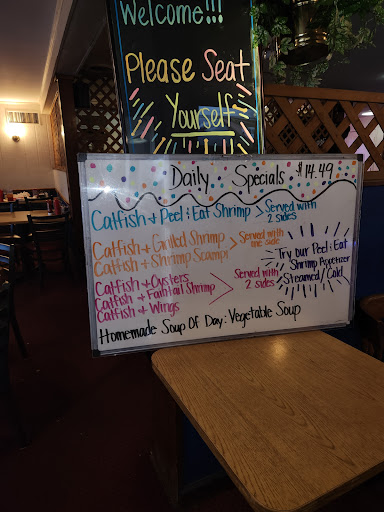 Welcome!!!
Please Seat
Yourself
Daily Specials $14.49
Catfish + Peel & Eat Shrimp > Served with
2 sides
Catfish + Grilled Shrimp
Catfish + Shrimp Scampi
> Served with
one side
Try our Peel & Eat
Shrimp Appetizer
Steamed / Cold
Catfish + Oysters
Catfish + Fantail Shrimp
Catfish + Wings
> Served with
2 sides
Homemade Soup Of Day: Vegetable Soup